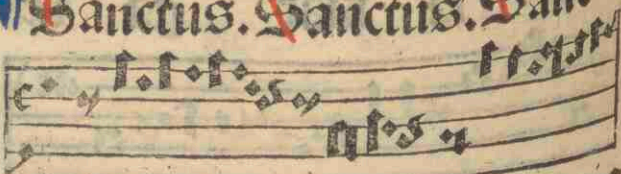 Sanctus. Sanctus. San